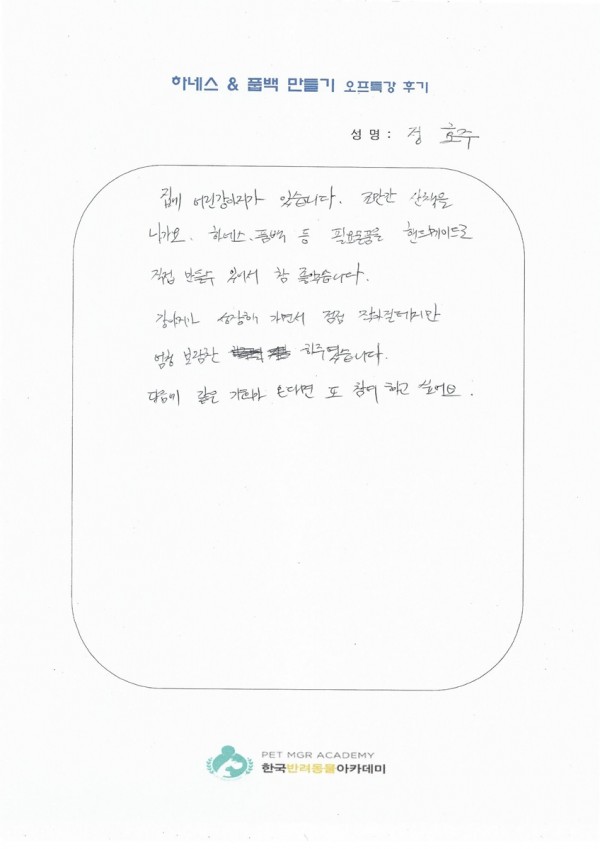 하네스 & 풉백 만들기 오프특강 후기
성 명 : 정 효주
집에 어린강아지가 있습니다. 조만간 산책을
나가요. 하네스, 풉백 등 필요물품을 핸드메이드로
직접 만들수 있어서 참 좋았습니다.
강아지가 성장해 가면서 점점 작아질테지만
엄청 보람찬 하루였습니다.
다음에 같은 기회가 온다면 또 참여 하고 싶어요.
PET MGR ACADEMY
한국반려동물아카데미